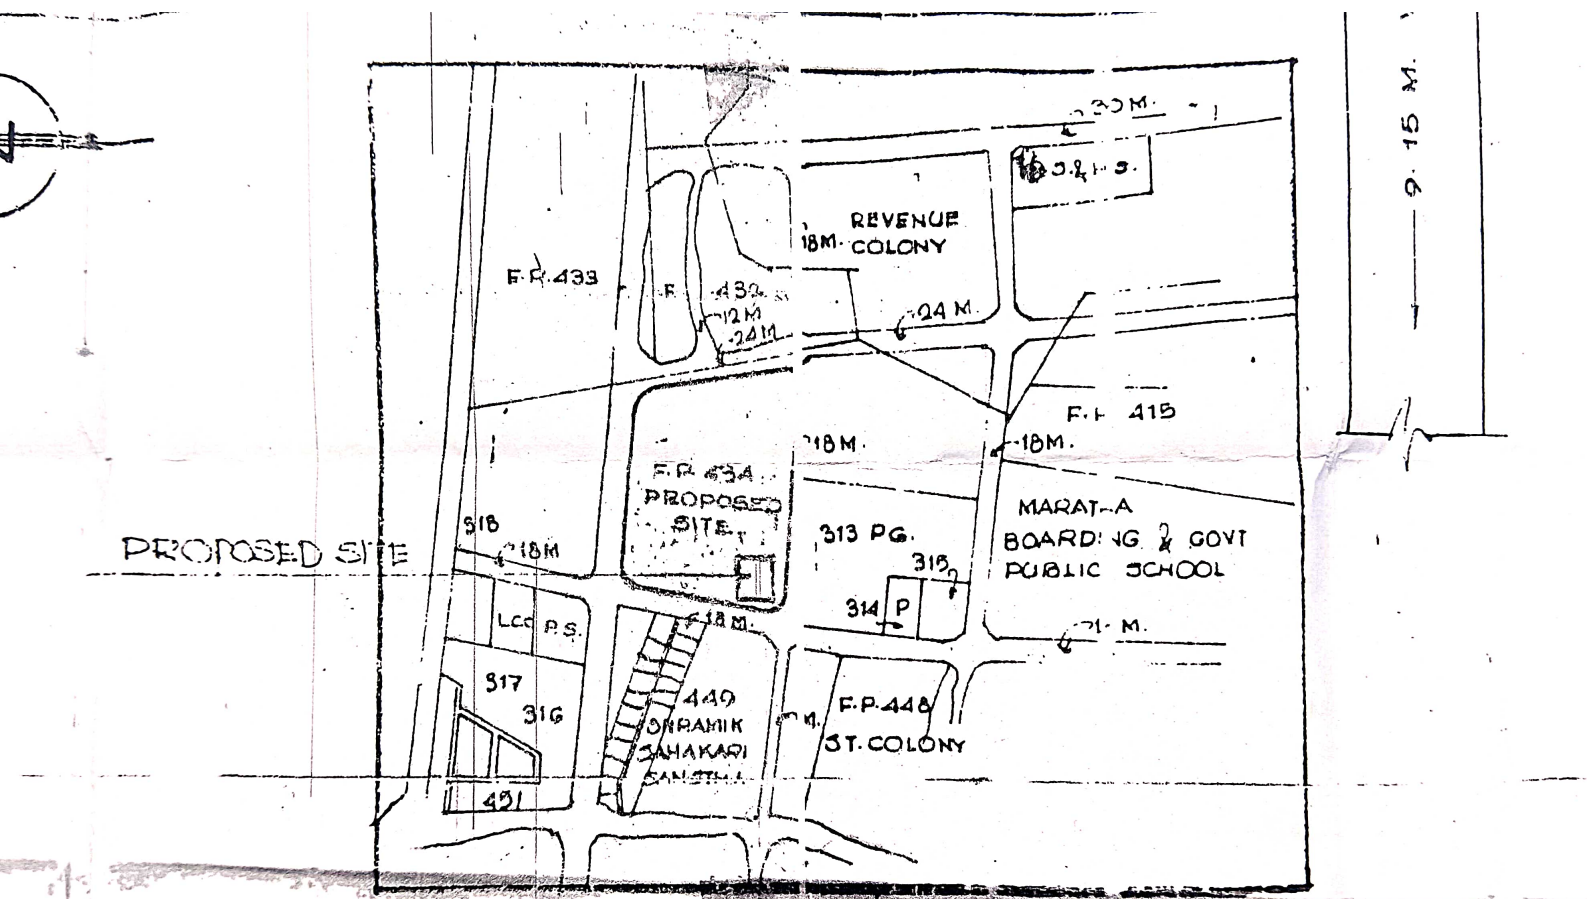 30 M.
9.15 M.
REVENUE
COLONY
18M.
F.P. 433
432
12M
24M
24 M.
F.P. 415
18M.
18M.
F.P. 434
PROPOSED
SITE
MARATHA
BOARDING & GOVT
PUBLIC SCHOOL
313 PG.
315
314 P
318
18M
PROPOSED SITE
P.S.
18M.
M.
317
316
449
SHRAMIK
SAHAKARI
SANSTHA
M.
F.P. 448
ST. COLONY
491